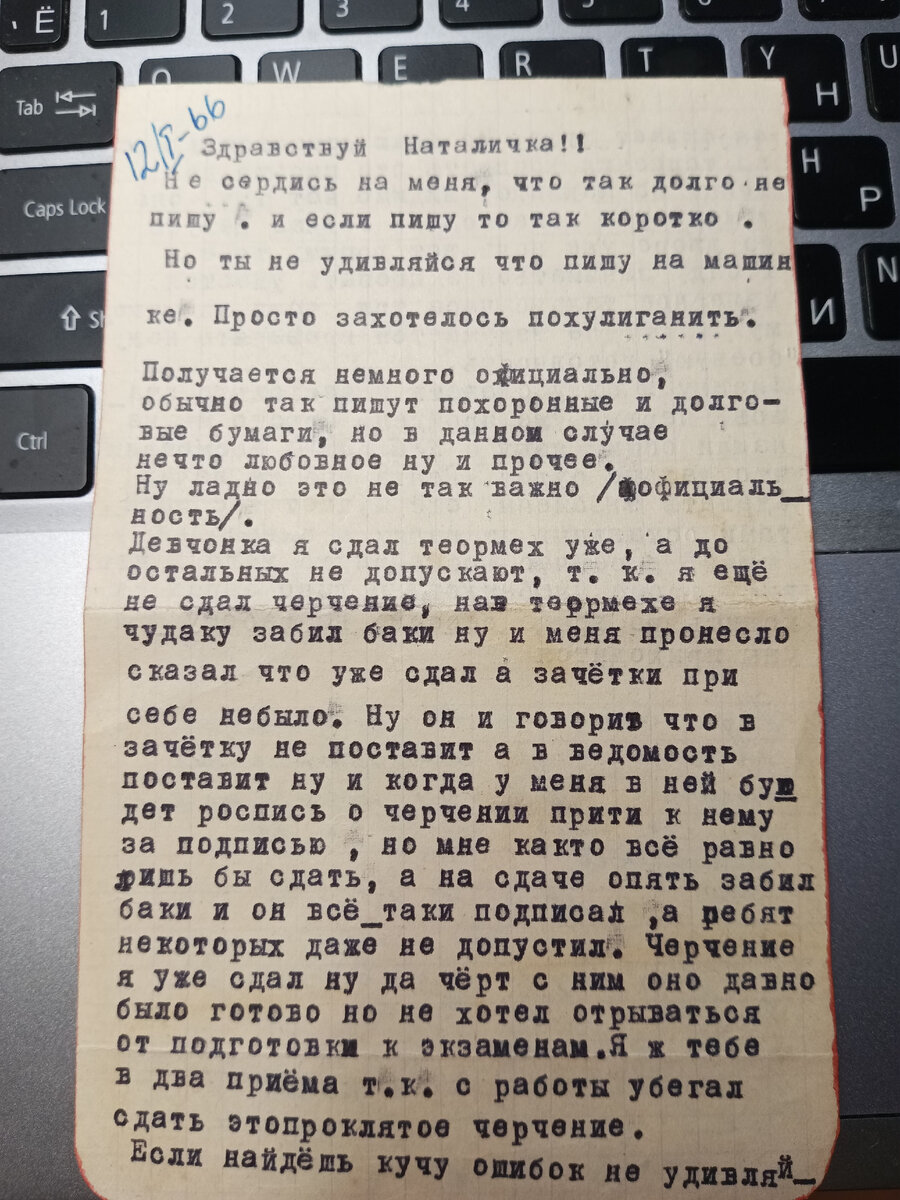 Ё
1
2
3
4
5
6
Tab
Q
W
E
R
T
Y
Н
U
Caps Lock
H
Р
И
N
Ctrl
12/I-66
Здравствуй Наталичка!!
Не сердись на меня, что так долго не
пишу . и если пишу то так коротко .
Но ты не удивляйся что пишу на машин
ке. Просто захотелось похулиганить.
Получается немного официально,
обычно так пишут похоронные и долго-
вые бумаги, но в данном случае
нечто любовное ну и прочее.
Ну ладно это не так важно /официаль_
ность/.
Девчонка я сдал теормех уже, а до
остальных не допускают, т. к. я ещё
не сдал черчение, на теормехе я
чудаку забил баки ну и меня пронесло
сказал что уже сдал а зачётки при
себе небыло. Ну он и говорит что в
зачётку не поставит а в ведомость
поставит ну и когда у меня в ней бу_
дет роспись о черчении прити к нему
за подписью , но мне както всё равно
лишь бы сдать, а на сдаче опять забил
баки и он всё_таки подписал ,а ребят
некоторых даже не допустил. Черчение
я уже сдал ну да чёрт с ним оно давно
было готово но не хотел отрываться
от подготовки к экзаменам.Я ж тебе
в два приёма т.к. с работы убегал
сдать этопроклятое черчение.
Если найдёшь кучу ошибок не удивляй_